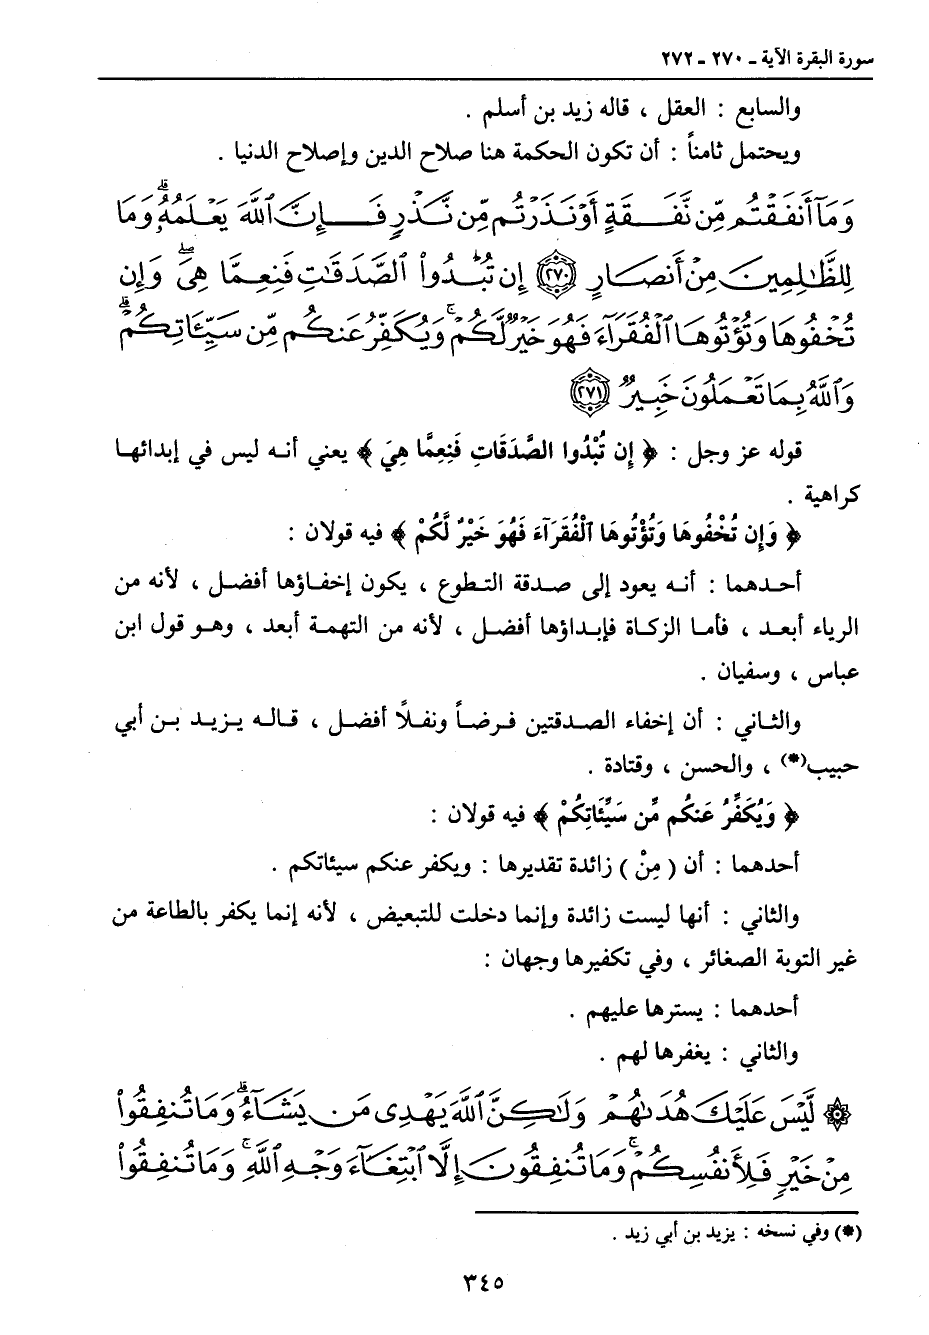 سورة البقرة الآية ـ ٢٧٠ ـ ٢٧٢
والسابع : العقل ، قاله زيد بن أسلم .
ويحتمل ثامناً : أن تكون الحكمة هنا صلاح الدين وإصلاح الدنيا .
وَمَآ أَنفَقْتُم مِّن نَّفَقَةٍ أَوْ نَذَرْتُم مِّن نَّذْرٍ فَإِنَّ ٱللَّهَ يَعْلَمُهُۥۗ وَمَا
لِلظَّٰلِمِينَ مِنْ أَنصَارٍ ﴿٢٧٠﴾ إِن تُبْدُوا۟ ٱلصَّدَقَٰتِ فَنِعِمَّا هِىَۖ وَإِن
تُخْفُوهَا وَتُؤْتُوهَا ٱلْفُقَرَآءَ فَهُوَ خَيْرٌ لَّكُمْۚ وَيُكَفِّرُ عَنكُم مِّن سَيِّـَٔاتِكُمْۗ
وَٱللَّهُ بِمَا تَعْمَلُونَ خَبِيرٌ ﴿٢٧١﴾
قوله عز وجل : ﴿ إِن تُبْدُوا الصَّدَقَاتِ فَنِعِمَّا هِيَ ﴾ يعني أنه ليس في إبدائها
كراهية .
﴿ وَإِن تُخْفُوهَا وَتُؤْتُوهَا ٱلْفُقَرَآءَ فَهُوَ خَيْرٌ لَّكُمْ ﴾ فيه قولان :
أحدهما : أنه يعود إلى صدقة التطوع ، يكون إخفاؤها أفضل ، لأنه من
الرياء أبعد ، فأما الزكاة فإبداؤها أفضل ، لأنه من التهمة أبعد ، وهو قول ابن
عباس ، وسفيان .
والثاني : أن إخفاء الصدقتين فرضاً ونفلًا أفضل ، قاله يزيد بن أبي
حبيب(*) ، والحسن ، وقتادة .
﴿ وَيُكَفِّرُ عَنكُم مِّن سَيِّئَاتِكُمْ ﴾ فيه قولان :
أحدهما : أن ( مِنْ ) زائدة تقديرها : ويكفر عنكم سيئاتكم .
والثاني : أنها ليست زائدة وإنما دخلت للتبعيض ، لأنه إنما يكفر بالطاعة من
غير التوبة الصغائر ، وفي تكفيرها وجهان :
أحدهما : يسترها عليهم .
والثاني : يغفرها لهم .
۞ لَّيْسَ عَلَيْكَ هُدَىٰهُمْ وَلَٰكِنَّ ٱللَّهَ يَهْدِى مَن يَشَآءُۗ وَمَا تُنفِقُوا۟
مِنْ خَيْرٍ فَلِأَنفُسِكُمْۚ وَمَا تُنفِقُونَ إِلَّا ٱبْتِغَآءَ وَجْهِ ٱللَّهِۚ وَمَا تُنفِقُوا۟
(*) وفي نسخه : يزيد بن أبي زيد .
٣٤٥